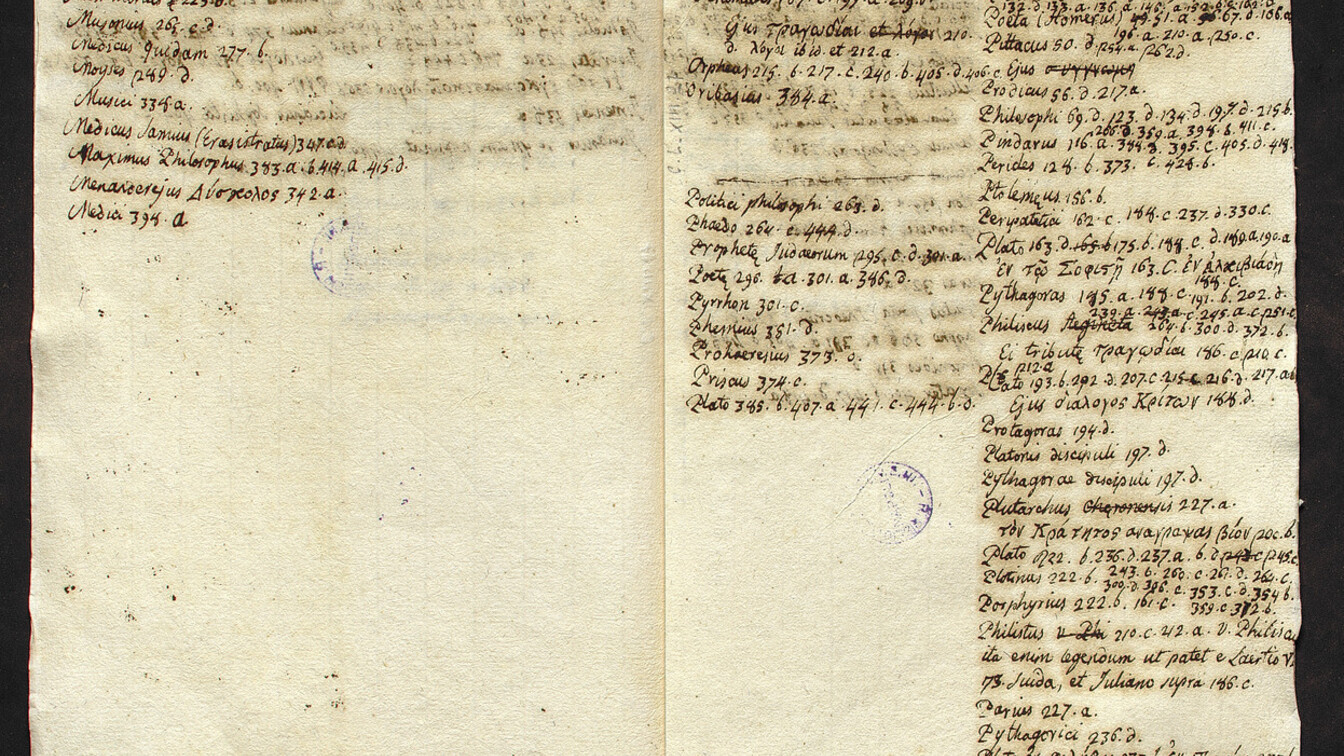 Musonius 265. c. d.
Medicus quidam 277. b.
Moyses 289. d.
Musici 338 a.
Medicus Samius (Erasistratus) 347. c d
Maximus Philosophus 383. a. b. 414. a. 415. d.
Menandrejus Δύσκολος 342. a.
Medici 398. a
Ejus τραγωδίαι et λόγοι 210.
d. λόγοι ibid. et 212. a.
Orpheus 215. b. 217. c. 240. b. 405. d. 406. c.
Oribasius 384. a.
Politici philosophi 263. d.
Phaedo 264. c. 444. d.
Prophetę Judaeorum 295. c. d. 301. a.
Poetę 296. a. 301. a. 386. d.
Pyrrhon 301. c.
Phemius 351. d.
Prohaeresius 373. o.
Priscus 374. c.
Plato 385. b. 407. a. 441. c. 444. b. d.
132. d. 133. a. 136. a. 146. a. 152.
Poeta (Homerus) 49. 51. a. 67. d. 106. a
196. a. 210. a. 250. c.
Pittacus 50. d. 254. a. 262 d.
Ejus συγγνωμη
Prodicus 56. d. 217. a.
Philosophi 69. d. 123. d. 134. d. 197. d. 215. b.
266. d. 359. a. 398. b. 411. c.
Pindarus 116. a. 388. d. 395. c. 405. d. 418.
Pericles 128. b. 373. c. 428. b.
Ptolemęus 156. b.
Peripatetici 162. c. 188. c. 237. d. 330. c.
Plato 163. d. 165. b 175. b. 188. c. d. 189. a. 190. a
ἐν τῷ Σοφιςῇ 163. C. ἐν Ἀλκιβιάδη
188. c.
Pythagoras 185. a. 188. c. 191. b. 202. d.
239. a. 243. a. c. 245. a. c. 251. c.
Philiscus Aegineta 264. b. 300. d. 372. b.
Ei tributę τραγωδίαι 186. c. 210. c.
212. a
Plato 193. b. 292. d. 207. c. 215. c. 216. d. 217. a.
Ejus διαλογος Κρίτων 188. d.
Protagoras 194. d.
Platonis discipuli 197. d.
Pythagorae discipuli 197. d.
Plutarchus Chęronensis 227. a.
τὸν Κράτητος αναγραψας βίον 200. b.
Plato 222. b. 236. d. 237. a. b. d. 242. c. 245. c.
243. b. 260. c. 261. d. 264. c.
Plotinus 222. b.
300. d. 306. c. 353. c. d. 354 b.
Porphyrius 222. b. 161. c. 359. c. 372. b.
Philistus v. Phi 210. c. 212. a. v. Philisc
ita enim legendum ut patet e Laertio VI
73. Suida, et Juliano supra 186. c.
Parius 227. a.
Pythagorici 236. d.